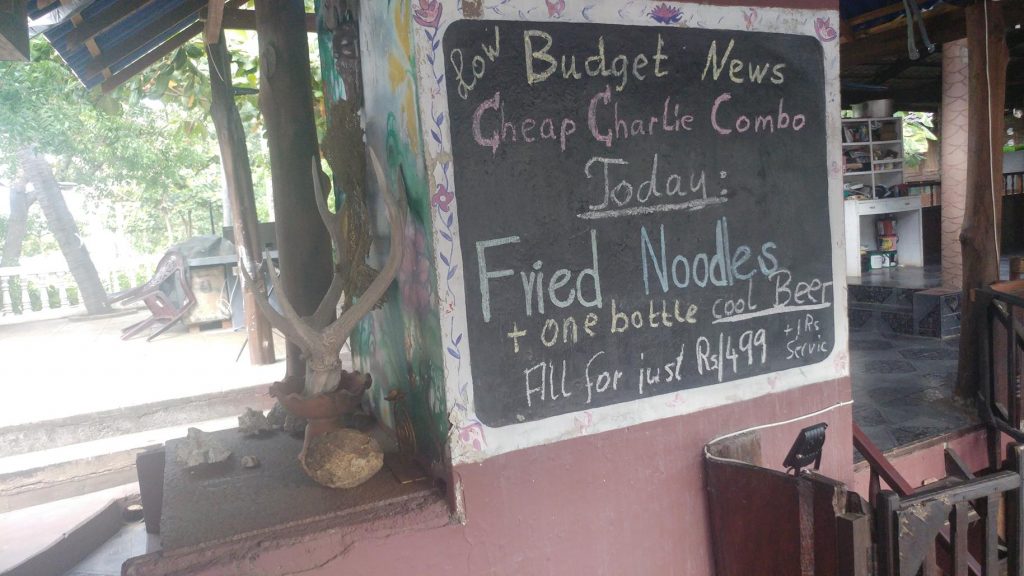 Low Budget News
Cheap Charlie Combo
Today:
Fried Noodles
+ one bottle cool Beer
All for just Rs/499 + 1 Rs
Servic